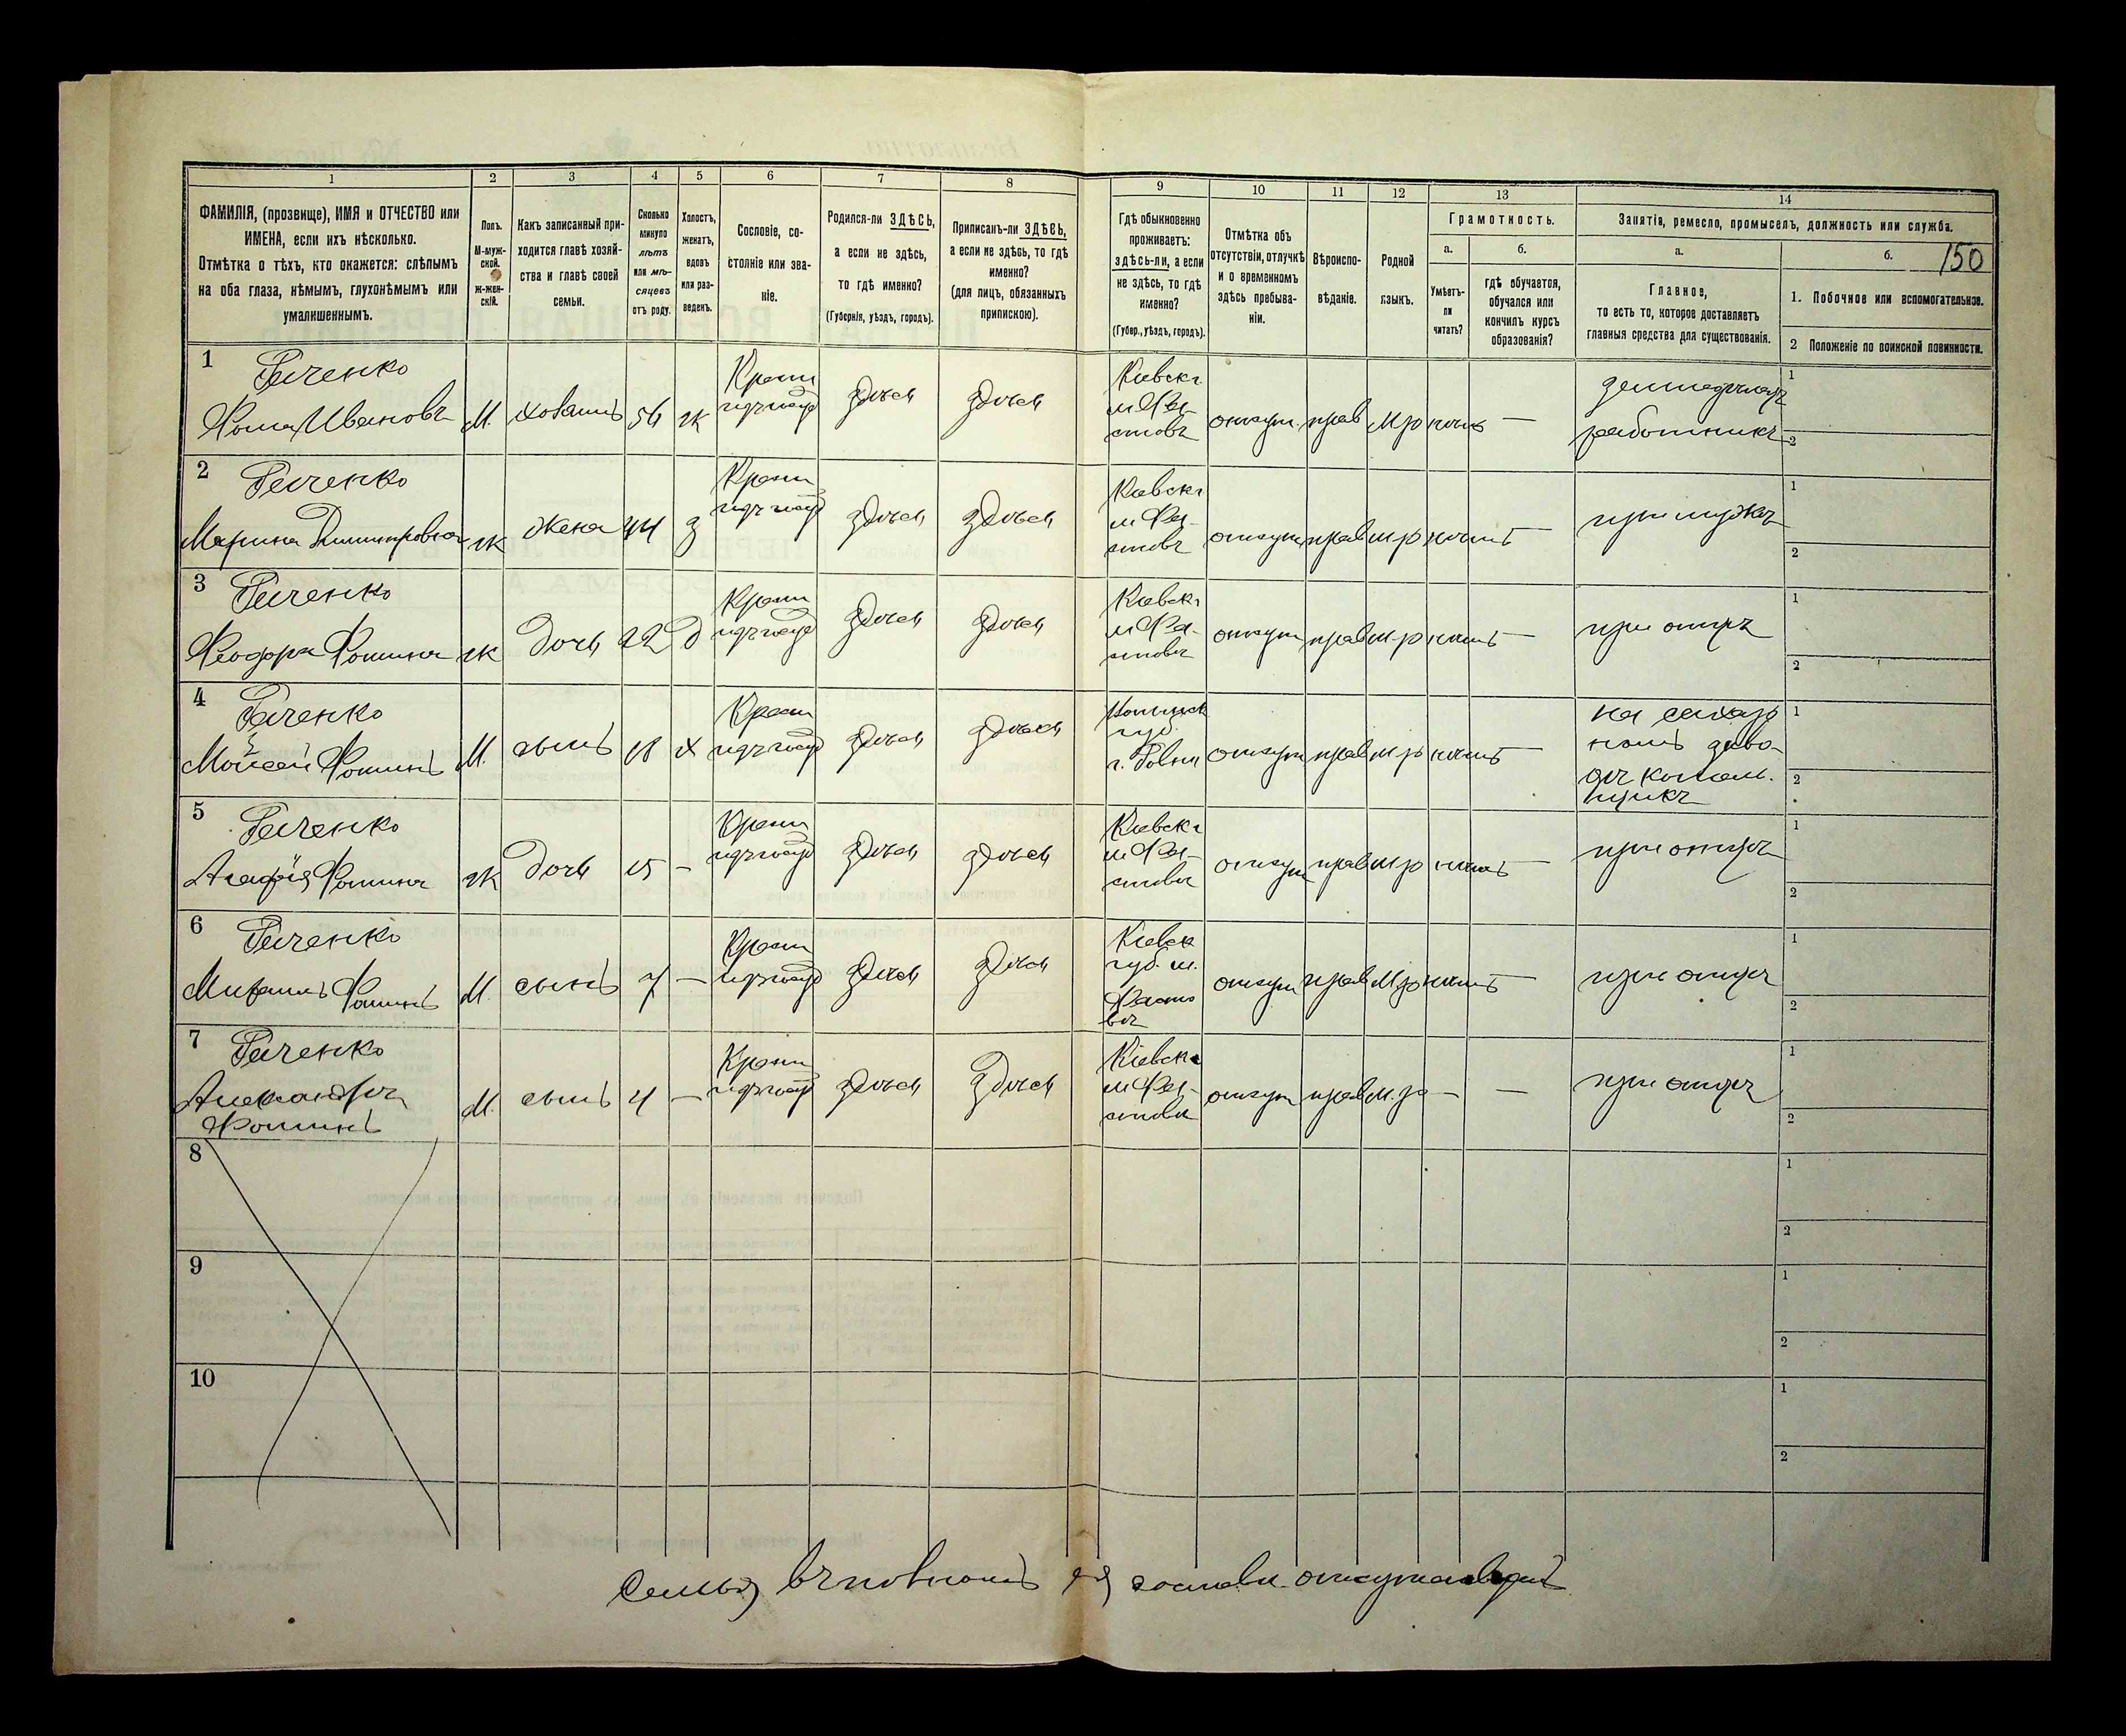 1
2
3
4
5
6
7
8
9
10
11
12
13
14
ФАМИЛІЯ, (прозвище), ИМЯ и ОТЧЕСТВО или
ИМЕНА, если ихъ нѣсколько.
Отмѣтка о тѣхъ, кто окажется: слѣпымъ
на оба глаза, нѣмымъ, глухонѣмымъ или
умалишеннымъ.
Полъ.
М-муж-
ской.
ж-жен-
скій.
Какъ записанный при-
ходится главѣ хозяй-
ства и главѣ своей
семьи.
Сколько
минуло
лѣтъ
или мѣ-
сяцевъ
отъ роду.
Холостъ,
женатъ,
вдовъ
или раз-
веденъ.
Сословіе, со-
стояніе или зва-
ніе.
Родился-ли ЗДѢСЬ,
а если не здѣсь,
то гдѣ именно?
(Губернія, уѣздъ, городъ).
Приписанъ-ли ЗДѢСЬ,
а если не здѣсь, то гдѣ
именно?
(для лицъ, обязанныхъ
припискою).
Гдѣ обыкновенно
проживаетъ:
здѣсь-ли, а если
не здѣсь, то гдѣ
именно?
(Губер., уѣздъ, городъ).
Отмѣтка объ
отсутствіи, отлучкѣ
и о временномъ
здѣсь пребыва-
ніи.
Вѣроиспо-
вѣданіе.
Родной
языкъ.
Грамотность.
а.
Умѣетъ-
ли
читать?
б.
гдѣ обучается,
обучался или
кончилъ курсъ
образованія?
Занятія, ремесло, промыселъ, должность или служба.
а.
Главное,
то есть то, которое доставляетъ
главныя средства для существованія.
б.
150
1. Побочное или вспомогательное.
2 Положеніе по воинской повинности.
1
Гаченко
Фома Ивановъ
М.
хозяинъ
56
ж
здѣсь
здѣсь
Кіевск.
м Фа-
стовъ
отсут.
прав
м р
нѣтъ
—
работникъ
1
2
2
Гаченко
Марина Димитровна
ж
жена
44
з
здѣсь
здѣсь
Кіевск.
м Фа-
стовъ
отсут
прав
м р
нѣтъ
—
при мужѣ
1
2
3
Гаченко
Феодора Фомина
ж
дочь
22
д
здѣсь
здѣсь
Кіевск.
м Фа-
стовъ
отсут
прав
м р
нѣтъ
—
при отцѣ
1
2
4
Гаченко
Моисей Фоминъ
М.
сынъ
18
х
здѣсь
здѣсь
губ.
г. Ровно
отсут
прав
м р
нѣтъ
—
на сахар
номъ заво-
дѣ котель-
щикъ
1
2
5
Гаченко
Агафія Фомина
ж
дочь
15
—
здѣсь
здѣсь
Кіевск.
м Фа-
стовъ
отсут
прав
м р
нѣтъ
—
при отцѣ
1
2
6
Гаченко
Михаилъ Фоминъ
М.
сынъ
7
—
здѣсь
здѣсь
Кіевск
губ. м.
Фасто
въ
отсут
прав
м р
нѣтъ
—
при отцѣ
1
2
7
Гаченко
Александръ
Фоминъ
М.
сынъ
4
—
здѣсь
здѣсь
Кіевск.
м Фа-
стовъ
отсут
прав
м. р
—
—
при отцѣ
1
2
8
1
2
9
1
2
10
1
2
Семья въ полномъ составѣ